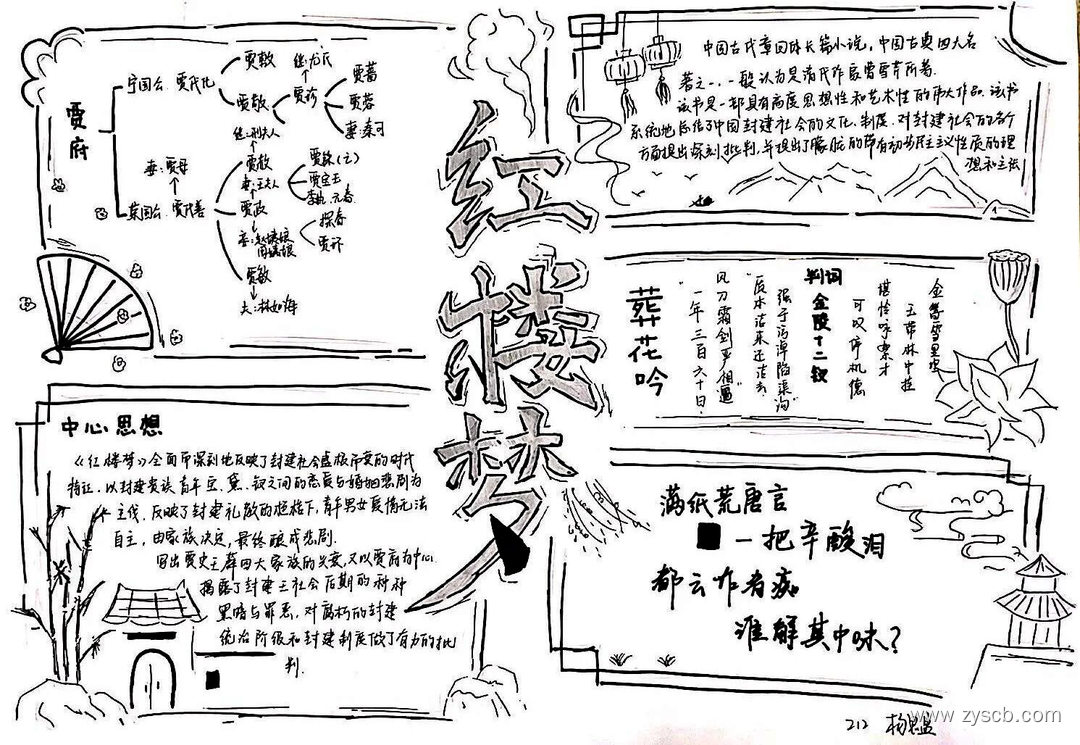 红楼梦
贾府
宁国公 贾代化
贾敷
贾敬
继:尤氏
贾珍
贾蔷
贾蓉
妻:秦可
继:邢夫人
贾赦
妻:王夫人
贾政
贾珠(亡)
贾宝玉
元春
探春
贾环
妾:赵姨娘
周姨娘
贾敏
夫:林如海
妻:贾母
荣国公 贾代善
中国古代章回体长篇小说,中国古典四大名
著之一,一般认为是清代作家曹雪芹所著.
该书是一部具有高度思想性和艺术性的伟大作品.该书
系统地总结了中国封建社会的文化、制度,对封建社会的各个
方面提出深刻批判,并提出了朦胧的带有初步民主主义性质的理
想和主张
金簪雪里埋
玉带林中挂
堪怜咏絮才
可叹停机德
金陵十二钗
判词
强于污淖陷渠沟"
"质本洁来还洁去,
风刀霜剑严相逼"
"一年三百六十日,
葬花吟
中心思想
《红楼梦》全面而深刻地反映了封建社会盛极而衰的时代
特征,以封建贵族青年宝、黛、钗之间的恋爱与婚姻悲剧为
主线,反映了封建礼教的桎梏下,青年男女爱情无法
自主,由家族决定,最终酿成悲剧.
写出贾史王薛四大家族的兴衰,又以贾府为中心
揭露了封建主社会后期的种种
黑暗与罪恶,对腐朽的封建
统治阶级和封建制度做了有力的批
判.
满纸荒唐言
一把辛酸泪
都云作者痴
谁解其中味?
212 杨
www.zyscb.com